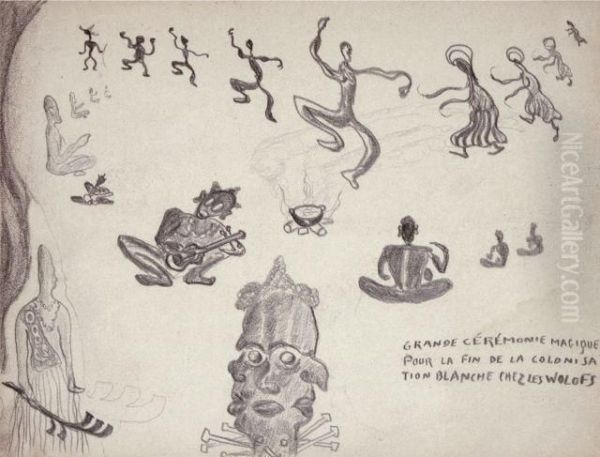 GRANDE CÉRÉMONIE MAGIQUE
POUR LA FIN DE LA COLONISA
TION BLANCHE CHEZ LES WOLOFS
NiceArtGallery.com